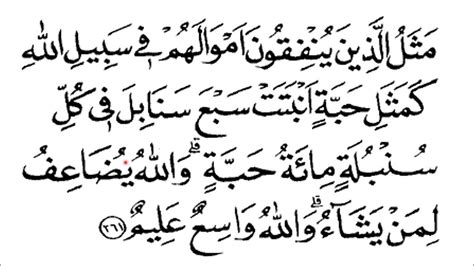 مَثَلُ الَّذِيْنَ يُنْفِقُوْنَ اَمْوَالَهُمْ فِيْ سَبِيْلِ اللّٰهِ
كَمَثَلِ حَبَّةٍ اَنْۢبَتَتْ سَبْعَ سَنَابِلَ فِيْ كُلِّ
سُنْۢبُلَةٍ مِائَةُ حَبَّةٍ ۗ وَاللّٰهُ يُضَاعِفُ
لِمَنْ يَشَاۤءُ ۗ وَاللّٰهُ وَاسِعٌ عَلِيْمٌ ﴿٢٦١﴾